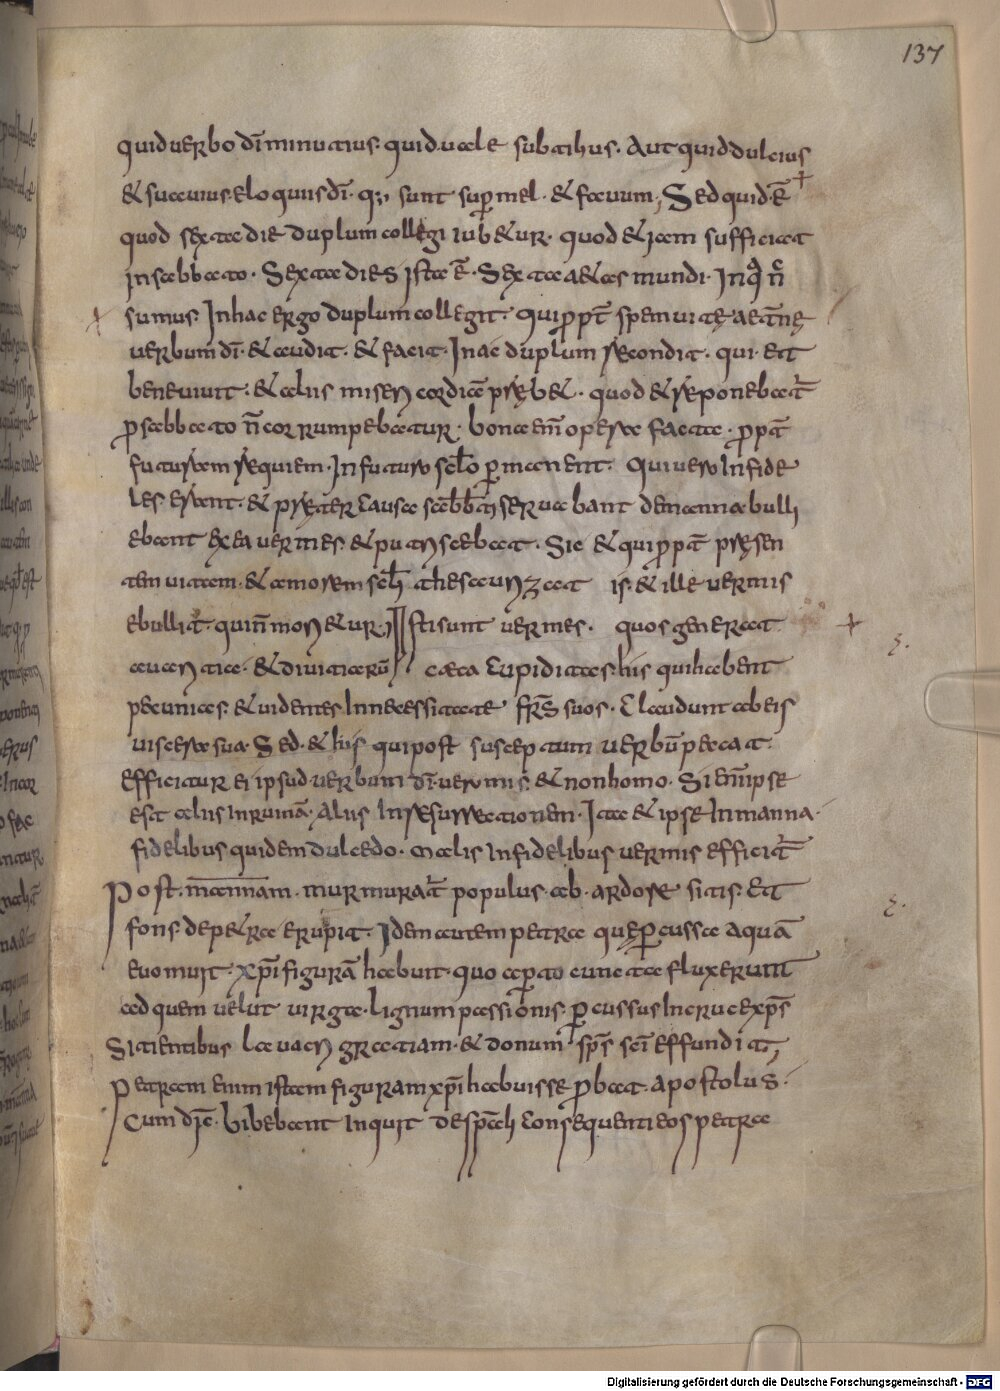 137
quid verbo dī minutius. quid uale subtilius. Aut quid dulcius
& suauius eloquiis dī. q; sunt sup mel. & fauum; Sed quid ē
quod sexta die duplum collegi iub&ur. quod & iam sufficiat
in sabbato. Sexta dies ista ē. Sexta aetas mundi. In q̄ nc̄
sumus. In hac ergo duplum collegit. qui ꝓpt̄ spem uitę aet̄nę
uerbum dī. & audit. & facit. In ac duplum recondit. qui. et
bene uiuit. & aliis misericordiā pręb&. quod & reponebat̄
ꝑ sabbato n̄ corrumpebatur. bona em̄ opera facta. ꝓpt̄
futuram requiem. In futuro sclo ꝑmanent. Qui uero infide
les erant. & pręter causa sabbati seruabant de manna bulli
ebant ex ea uermes. & putriscebat. Sic & qui ꝓpt̄ pręsen
tem uitam. & amorem sclī thesaurizat is. & ille uermis
ebullit. qui n̄ mori&ur; Isti sunt uermes. quos generat
auaritia. & diuitiarū caeca cupiditas. his qui habent
pecunias. & uidentes in necessitate frs̄ suos. Claudunt ab eis
uiscera sua. Sed. & his qui post susceptum uerbū peccat.
efficitur ei ipsud uerbum dī. uermis. & non homo. Si em̄ ipse
est aliis in ruinā. Aliis in resurrectionem. Ita & ipse in manna.
fidelibus quidem dulcedo. malis infidelibus uermis efficit̄
Post. mannam. murmurat̄ populus. ab. ardore sitis. Et
fons. de p&ra erupit. Idem autem petra quę ꝑcussa aquā
euomuit. xp̄i figurā habuit. quo aꝑto cuncta fluxerunt
ad quem uelut uirga. lignum passionis. ꝑcussus in cruce xp̄s
Sitientibus lauacri gratiam. & donum sps̄ scī effundit;
Petram enim istam figuram xp̄i habuisse ꝓbat. apostolus.
Cum dīc. bibebant inquit de spali consequenti eos petra
Digitalisierung gefördert durch die Deutsche Forschungsgemeinschaft - DFG